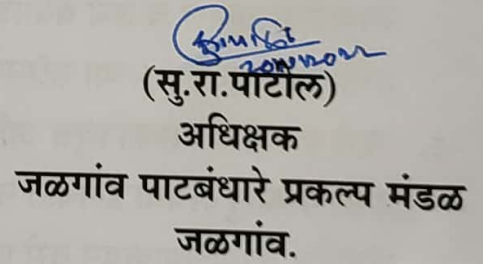 (सु.रा.पाटील)
अधिक्षक
जळगांव पाटबंधारे प्रकल्प मंडळ
जळगांव.